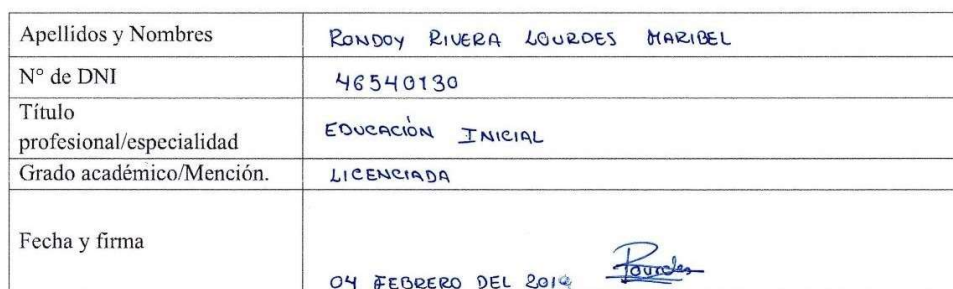 Apellidos y Nombres RONDOY RIVERA LOURDES MARIBEL
N° de DNI 46540130
Título
profesional/especialidad EDUCACIÓN INICIAL
Grado académico/Mención. LICENCIADA
Fecha y firma
04 FEBRERO DEL 2019 Lourdes